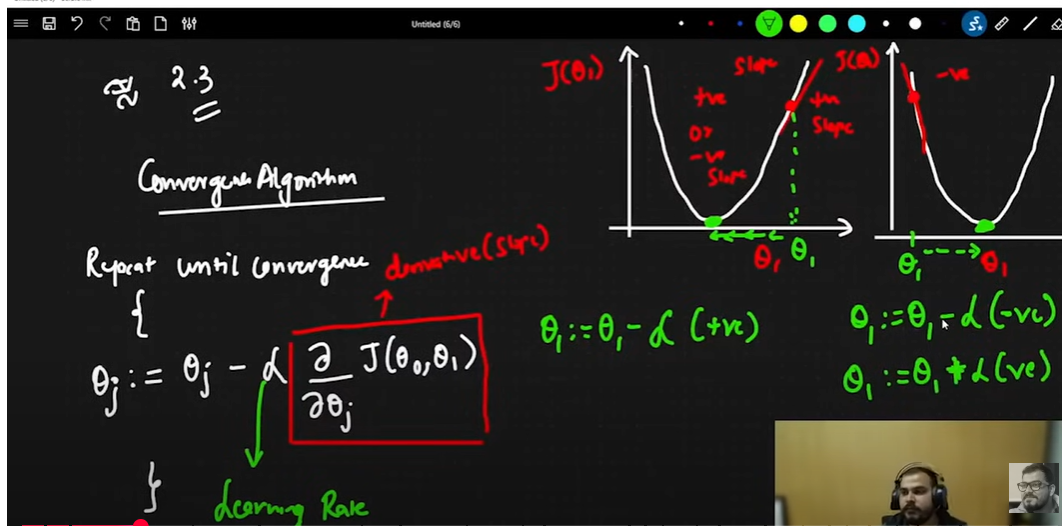 Untitled (6/6)
≈ 2.3
Convergence Algorithm
Repeat until convergence
{
θj := θj - α ∂/∂θj J(θ0, θ1)
}
derivative (slope)
Learning Rate
J(θ1)
slope
+ve
or
-ve
slope
+ve
slope
θ1 θ1
θ1 := θ1 - α (+ve)
J(θ)
-ve
θ1 θ1
θ1 := θ1 - α (-ve)
θ1 := θ1 + α (ve)